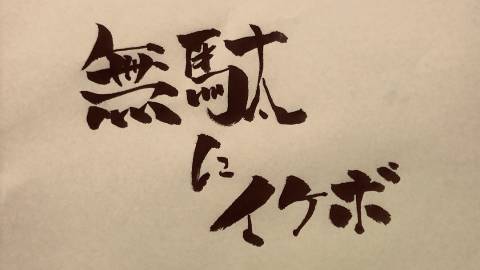 無駄
に
イケボ